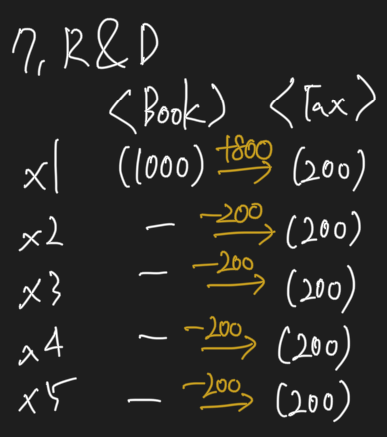 7, R&D
<Book> <Tax>
x1 (1000) +800 (200)
x2 — -200 (200)
x3 — -200 (200)
x4 — -200 (200)
x5 — -200 (200)